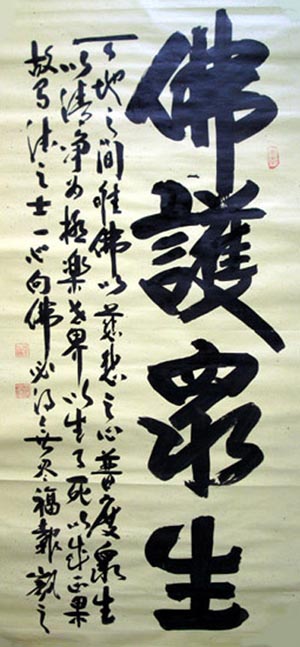 佛護眾生
天地之間唯佛以慈悲之心普度衆生
以清净为極樂世界以生了死以成正果
故法之士一心向佛必得福報之